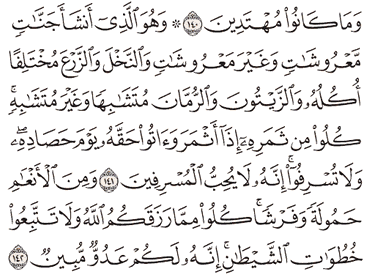 وَمَا كَانُوا۟ مُهْتَدِينَ ١٤٠ ۞ وَهُوَ ٱلَّذِىٓ أَنشَأَ جَنَّـٰتٍ
مَّعْرُوشَـٰتٍ وَغَيْرَ مَعْرُوشَـٰتٍ وَٱلنَّخْلَ وَٱلزَّرْعَ مُخْتَلِفًا
أُكُلُهُۥ وَٱلزَّيْتُونَ وَٱلرُّمَّانَ مُتَشَـٰبِهًا وَغَيْرَ مُتَشَـٰبِهٍ ۚ
كُلُوا۟ مِن ثَمَرِهِۦٓ إِذَآ أَثْمَرَ وَءَاتُوا۟ حَقَّهُۥ يَوْمَ حَصَادِهِۦ ۖ
وَلَا تُسْرِفُوٓا۟ ۚ إِنَّهُۥ لَا يُحِبُّ ٱلْمُسْرِفِينَ ١٤١ وَمِنَ ٱلْأَنْعَـٰمِ
حَمُولَةً وَفَرْشًا ۚ كُلُوا۟ مِمَّا رَزَقَكُمُ ٱللَّهُ وَلَا تَتَّبِعُوا۟
خُطُوَٰتِ ٱلشَّيْطَـٰنِ ۚ إِنَّهُۥ لَكُمْ عَدُوٌّ مُّبِينٌ ١٤٢